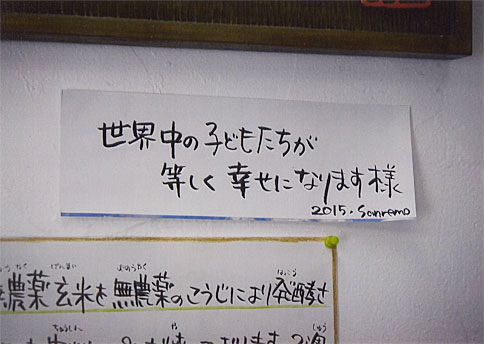 世界中の子どもたちが
等しく幸せになります様
2015. Sanremo
無農薬玄米を無農薬のこうじにより発酵さ